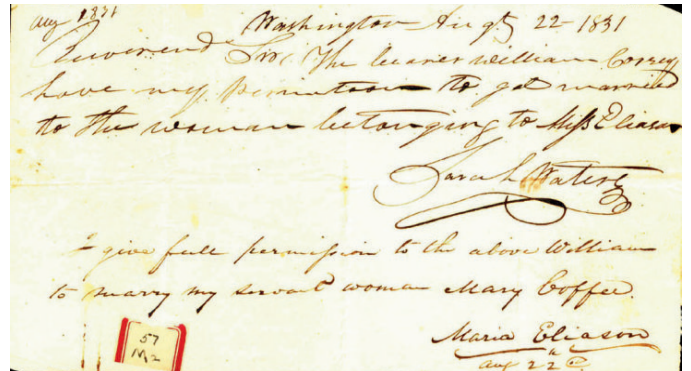 Aug 1831
Washington Augt 22 - 1831
Reverend Sir, The bearer William Correy
have my permition to get married
to the woman belonging to Miss Eliason
Sarah Waters
I give full permission to the above William
to marry my servant woman Mary Coffee.
Maria Eliason
Aug 22d
57
M2